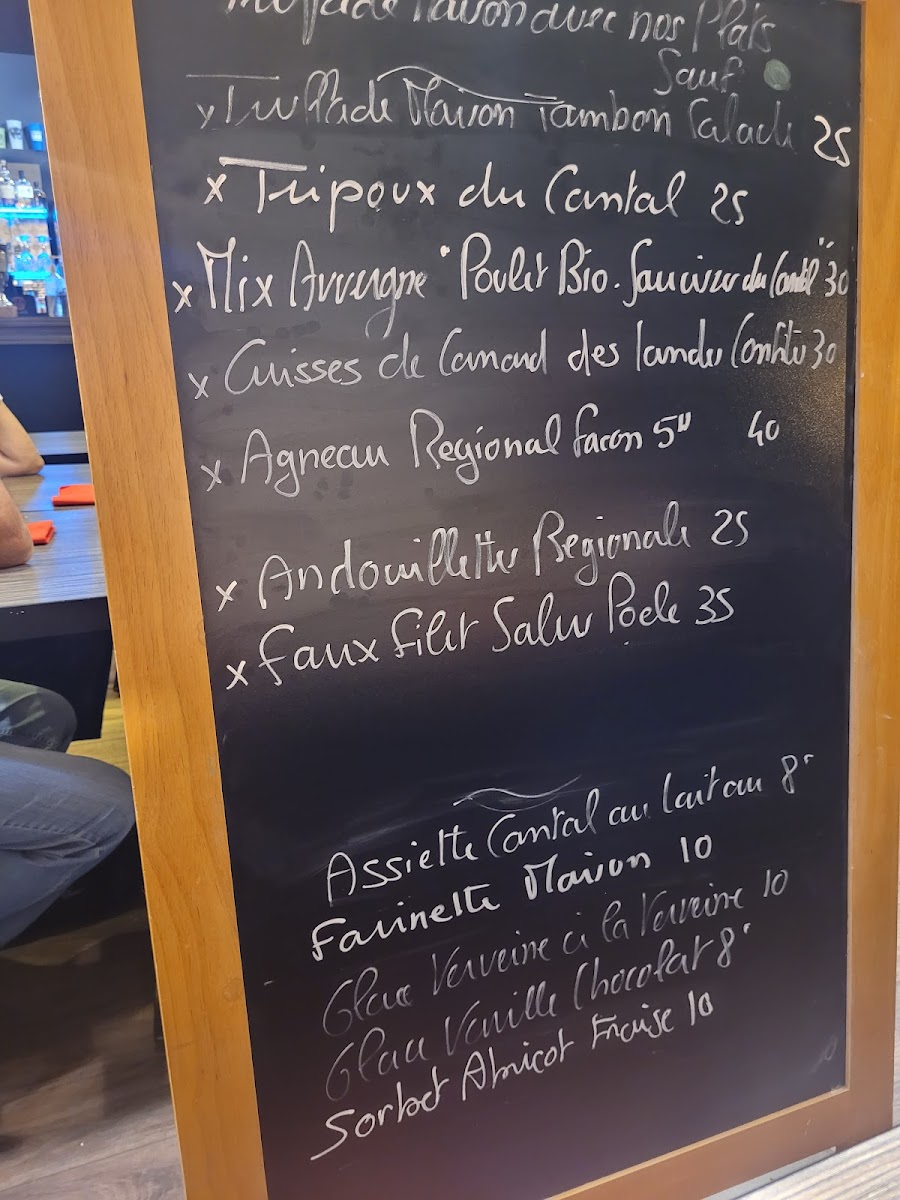 Truffade Maison avec nos Plats
Sauf
x Truffade Maison Jambon Salade 25
x Tripoux du Cantal 25
x Mix Auvergne "Poulet Bio. Saucisse du Cantal" 30
x Cuisses de Canard des landes Confites 30
x Agneau Regional facon 5H 40
x Andouillette Regionale 25
x Faux filet Salers Poele 35
Assiette Cantal au Lait cru 8
Farinette Maison 10
Glace Verveine à la Verveine 10
Glace Vanille Chocolat 8
Sorbet Abricot Fraise 10